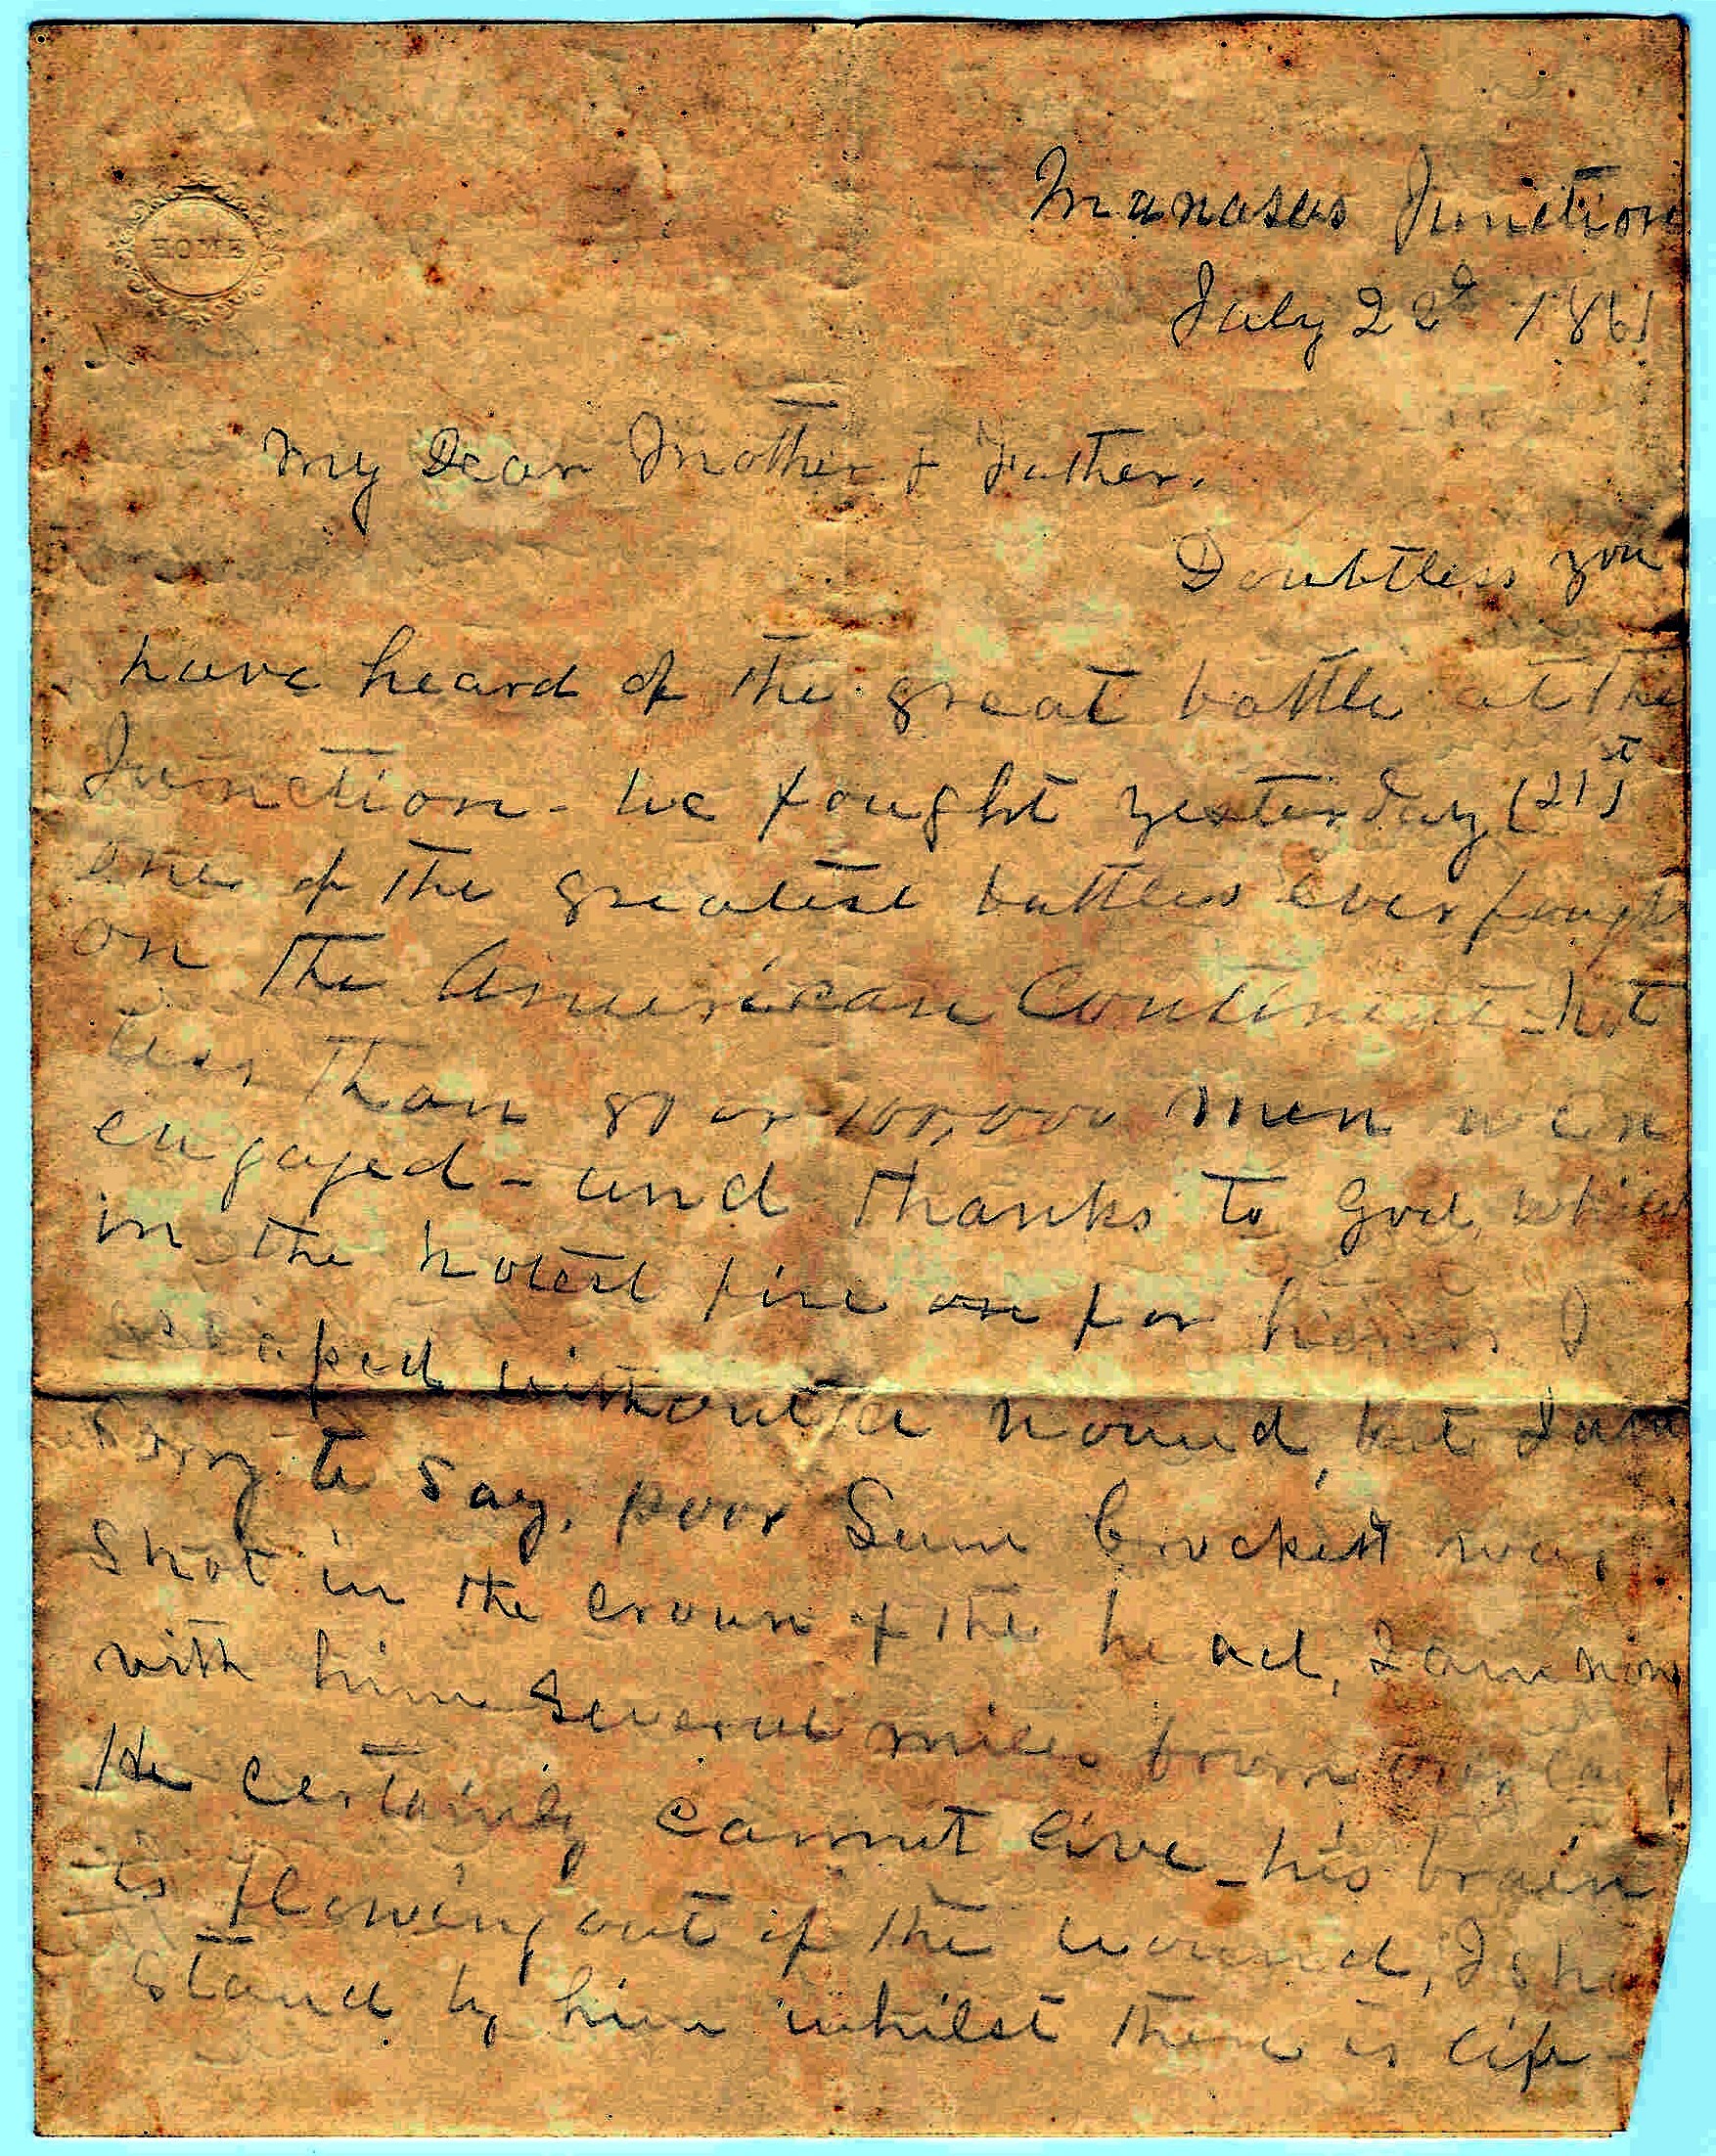 HOME
Manasas Junction
July 22d 1861
My Dear Mother & Father.
Doubtless you
have heard of the great battle at the
Junction - We fought yesterday (21st)
one of the greatest battles ever fought
on the American Continent - Not
less than 80 or 100,000 men were
engaged - and thanks to God, while
in the hotest fire on for hours I
escaped without a wound, but I am
sorry to say, poor Sam was
shot in the crown of the head, I am now
with him several miles from our
He certainly cannot live - his brain
is flowing out of the wound, I sha
stand by him whilst there is life -